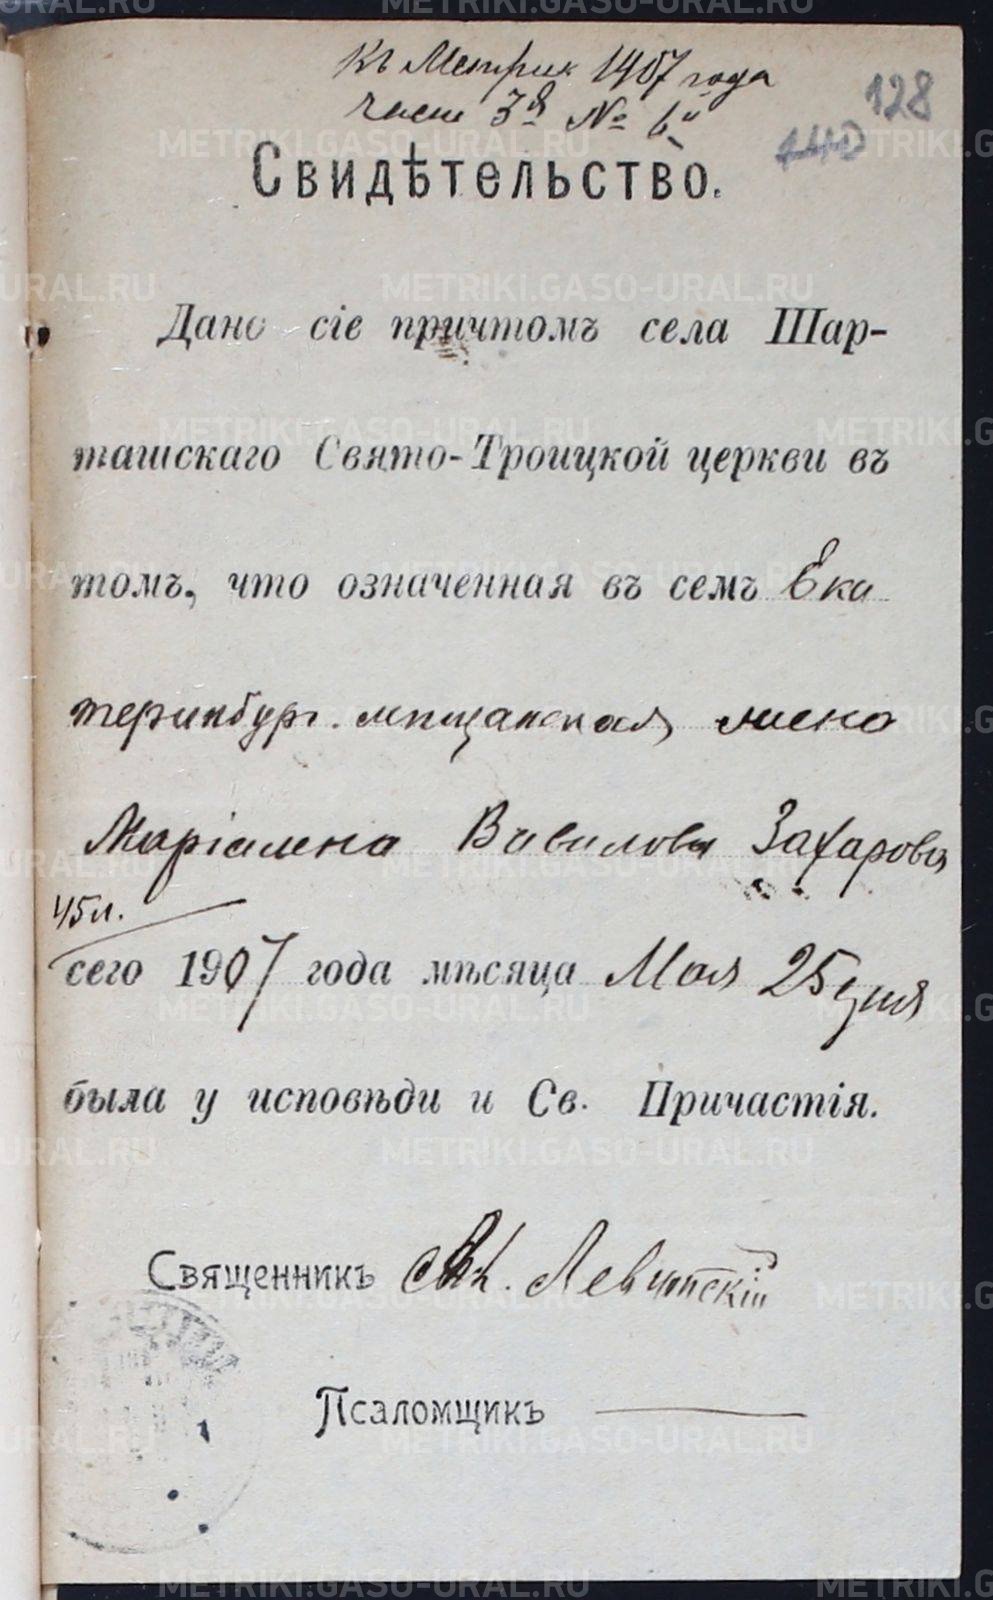 Къ Метрик 1907 года
128
части 3й № 6й
140
Свидѣтельство.
Дано сіе причтомъ села Шар-
ташскаго Свято-Троицкой церкви въ
томъ, что означенная въ семъ Ека
теринбург. мѣщанская жена
Маріамна Вавилова Захарова
45 л.
сего 1907 года мѣсяца Мая 25 дня
была у исповѣди и Св. Причастія.
Священникъ Левитскій
Псаломщикъ
METRIKI.GASO-URAL.RU